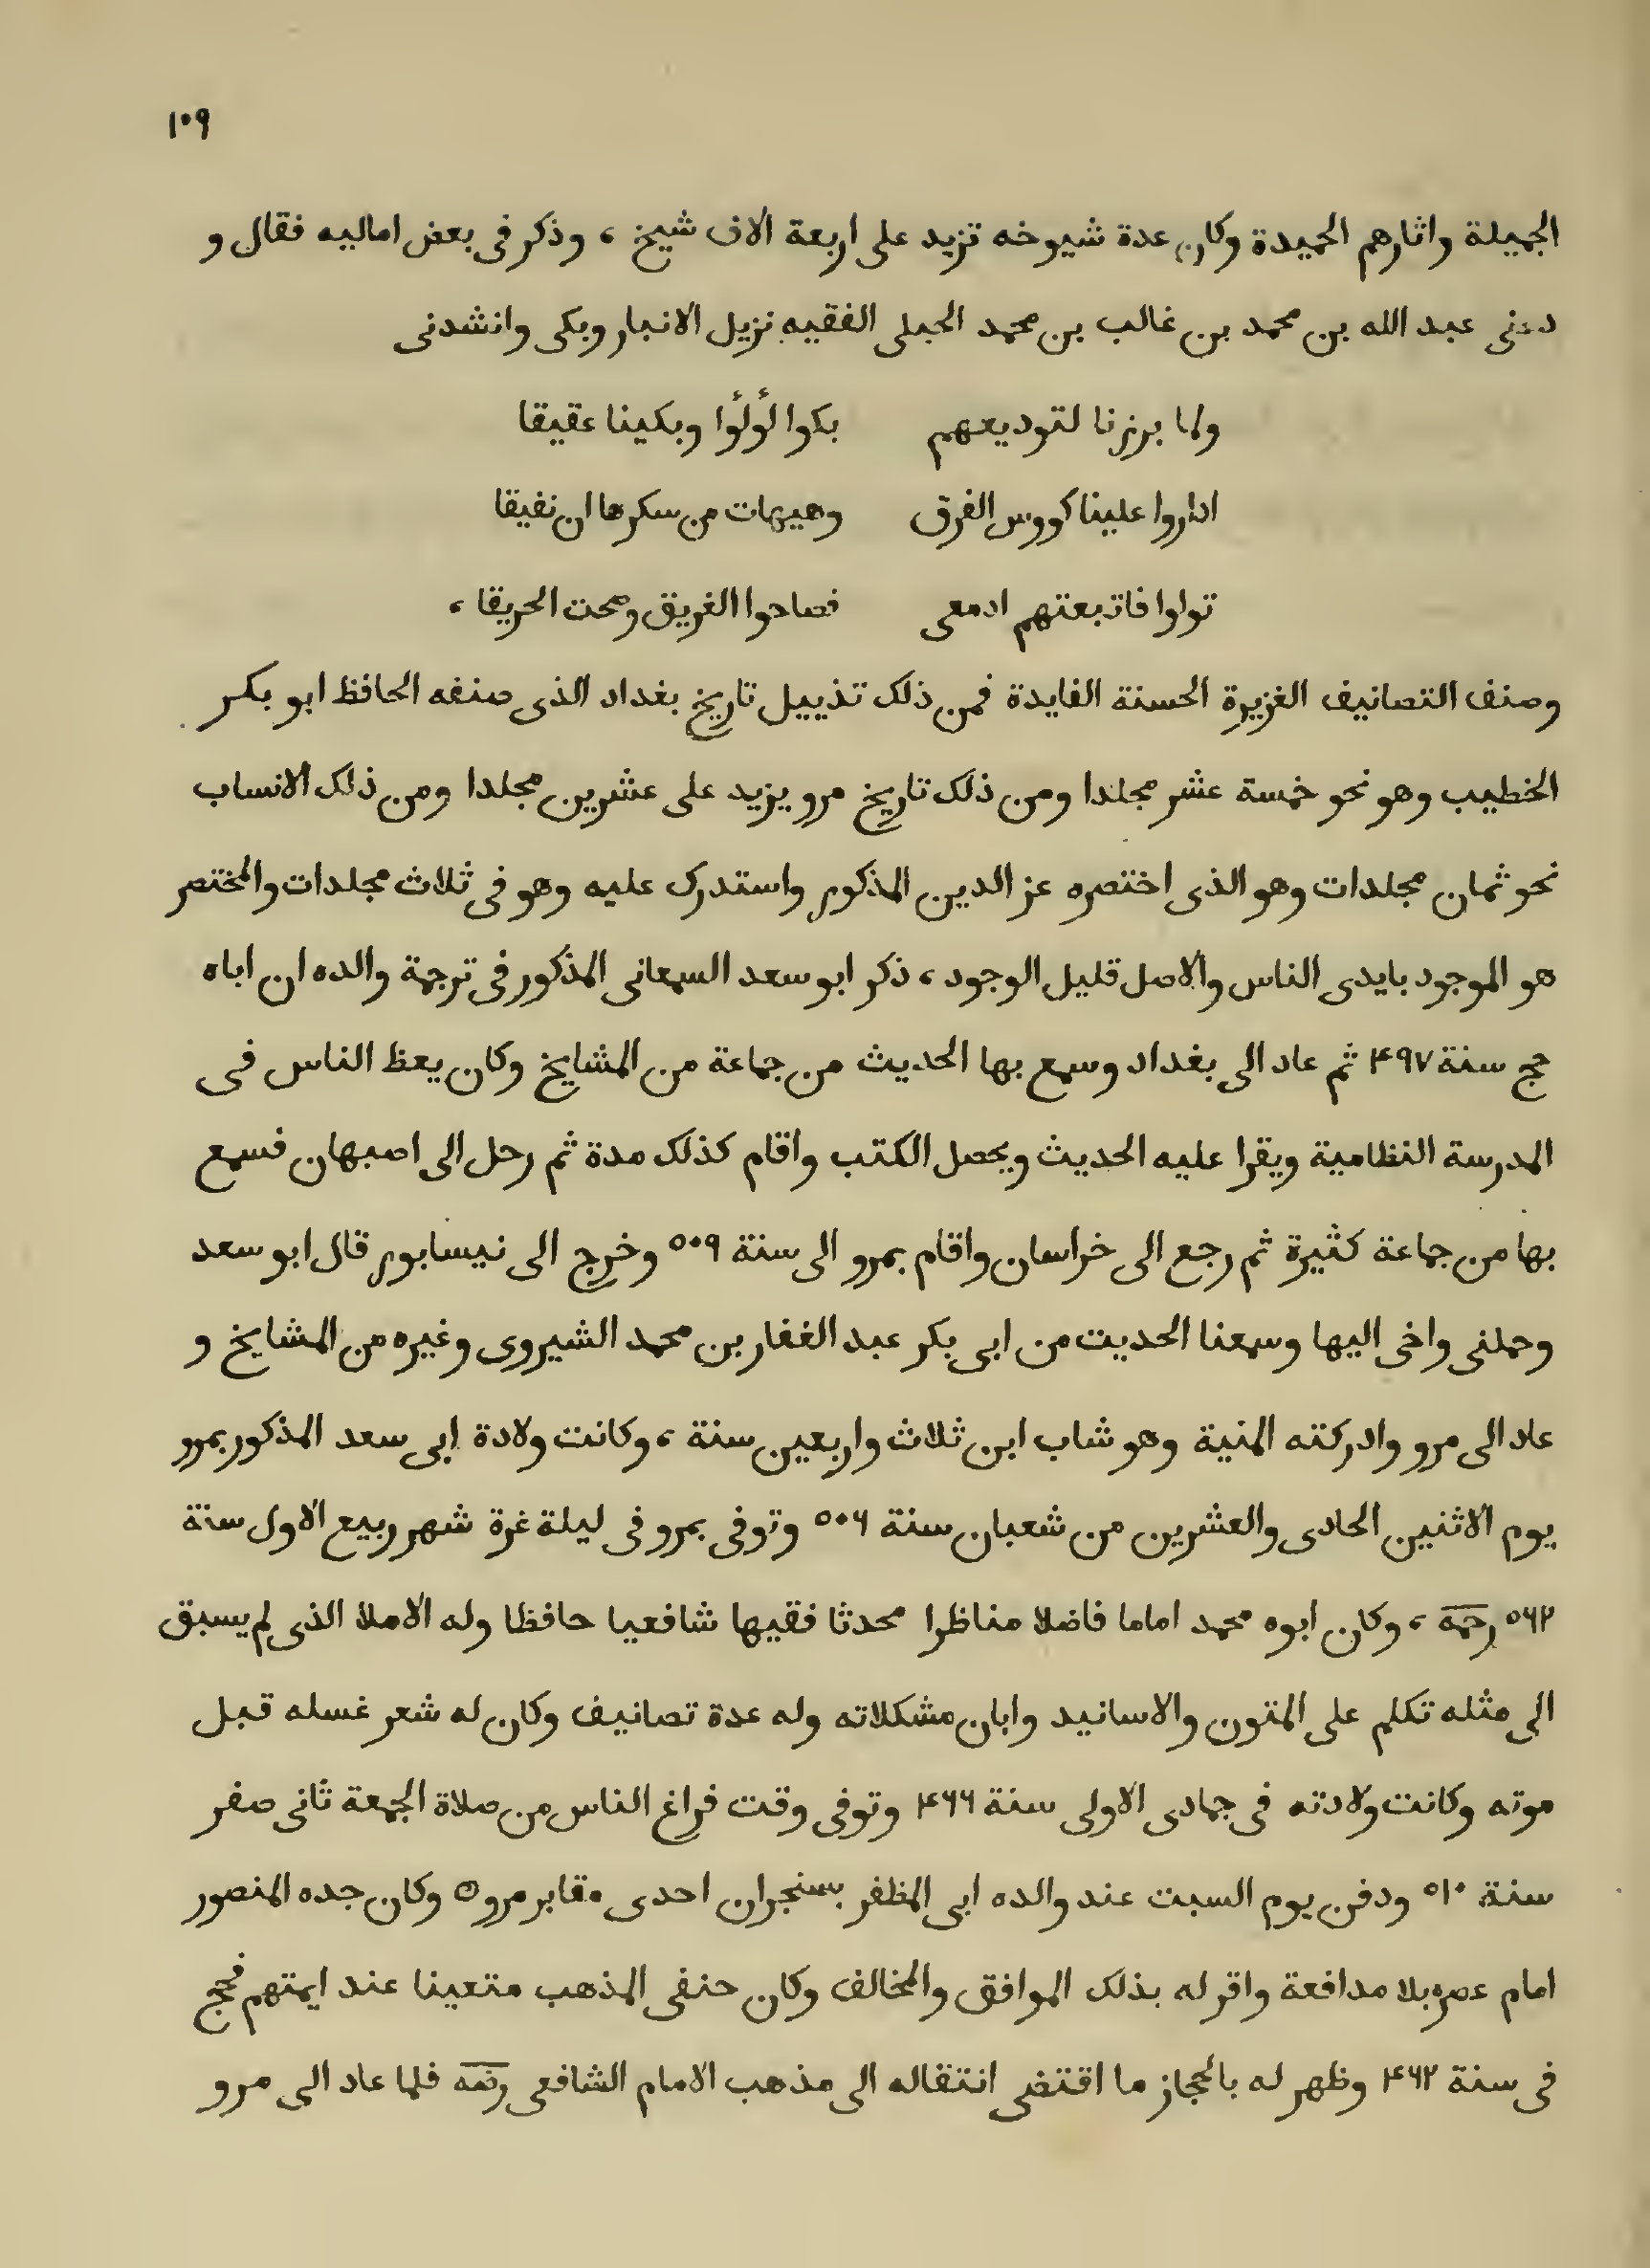 ١٠٩
الجميلة واثارهم الحميدة وكان عدة شيوخه تزيد على اربعة الاف شيخ ، وذكر فى بعض اماليه فقال و
دعنى عبد الله بن محمد بن غالب بن محمد الجبلى الفقيه نزيل الانبار وبكى وانشدنى
ولما برزنا لتوديعهم بكوا لؤلؤا وبكينا عقيقا
اداروا علينا كووس الفرق وهيهات من سكرها ان نفيقا
تولوا فاتبعتهم ادمعى فصاحوا الغريق وصحت الحريقا ،
وصنف التصانيف الغزيرة الحسنة الفايدة فمن ذلك تذييل تاريخ بغداد الذى صنفه الحافظ ابو بكر
الخطيب وهو نحو خمسة عشر مجلدا ومن ذلك تاريخ مرو يزيد على عشرين مجلدا ومن ذلك الانساب
نحو ثمان مجلدات وهو الذى اختصره عز الدين المذكور واستدرك عليه وهو فى ثلاث مجلدات والمختصر
هو الموجود بايدى الناس والاصل قليل الوجود ، ذكر ابو سعد السمعانى المذكور فى ترجمة والده ان اباه
حج سنة ۴۹۷ ثم عاد الى بغداد وسمع بها الحديث من جماعة من المشايخ وكان يعظ الناس فى
المدرسة النظامية ويقرا عليه الحديث ويحصل الكتب واقام كذلك مدة ثم رحل الى اصبهان فسمع
بها من جماعة كثيرة ثم رجع الى خراسان واقام بمرو الى سنة ٥٠٩ وخرج الى نيسابور قال ابو سعد
وحملنى واخى اليها وسمعنا الحديث من ابى بكر عبد الغفار بن محمد الشيروى وغيره من المشايخ و
عاد الى مرو وادركته المنية وهو شاب ابن ثلاث واربعين سنة ، وكانت ولادة ابى سعد المذكور بمرو
يوم الاثنين الحادى والعشرين من شعبان سنة ٥٠٦ وتوفى بمرو فى ليلة غرة شهر ربيع الاول سنة
٥٦٢ رحمه ، وكان ابوه محمد اماما فاضلا مناظرا محدثا فقيها شافعيا حافظا وله الاملا الذى لم يسبق
الى مثله تكلم على المتون والاسانيد وابان مشكلاته وله عدة تصانيف وكان له شعر غسله قبل
موته وكانت ولادته فى جمادى الاولى سنة ۴٦٦ وتوفى وقت فراغ الناس من صلاة الجمعة ثانى صفر
سنة ٥١٠ ودفن يوم السبت عند والده ابى المظفر بسنجران احدى مقابر مرو ۞ وكان جده المنصور
امام عصره بلا مدافعة واقر له بذلك الموافق والمخالف وكان حنفى المذهب متعينا عند ايمتهم فحج
فى سنة ۴٦٢ وظهر له بالحجاز ما اقتضى انتقاله الى مذهب الامام الشافعى رضه فلما عاد الى مرو